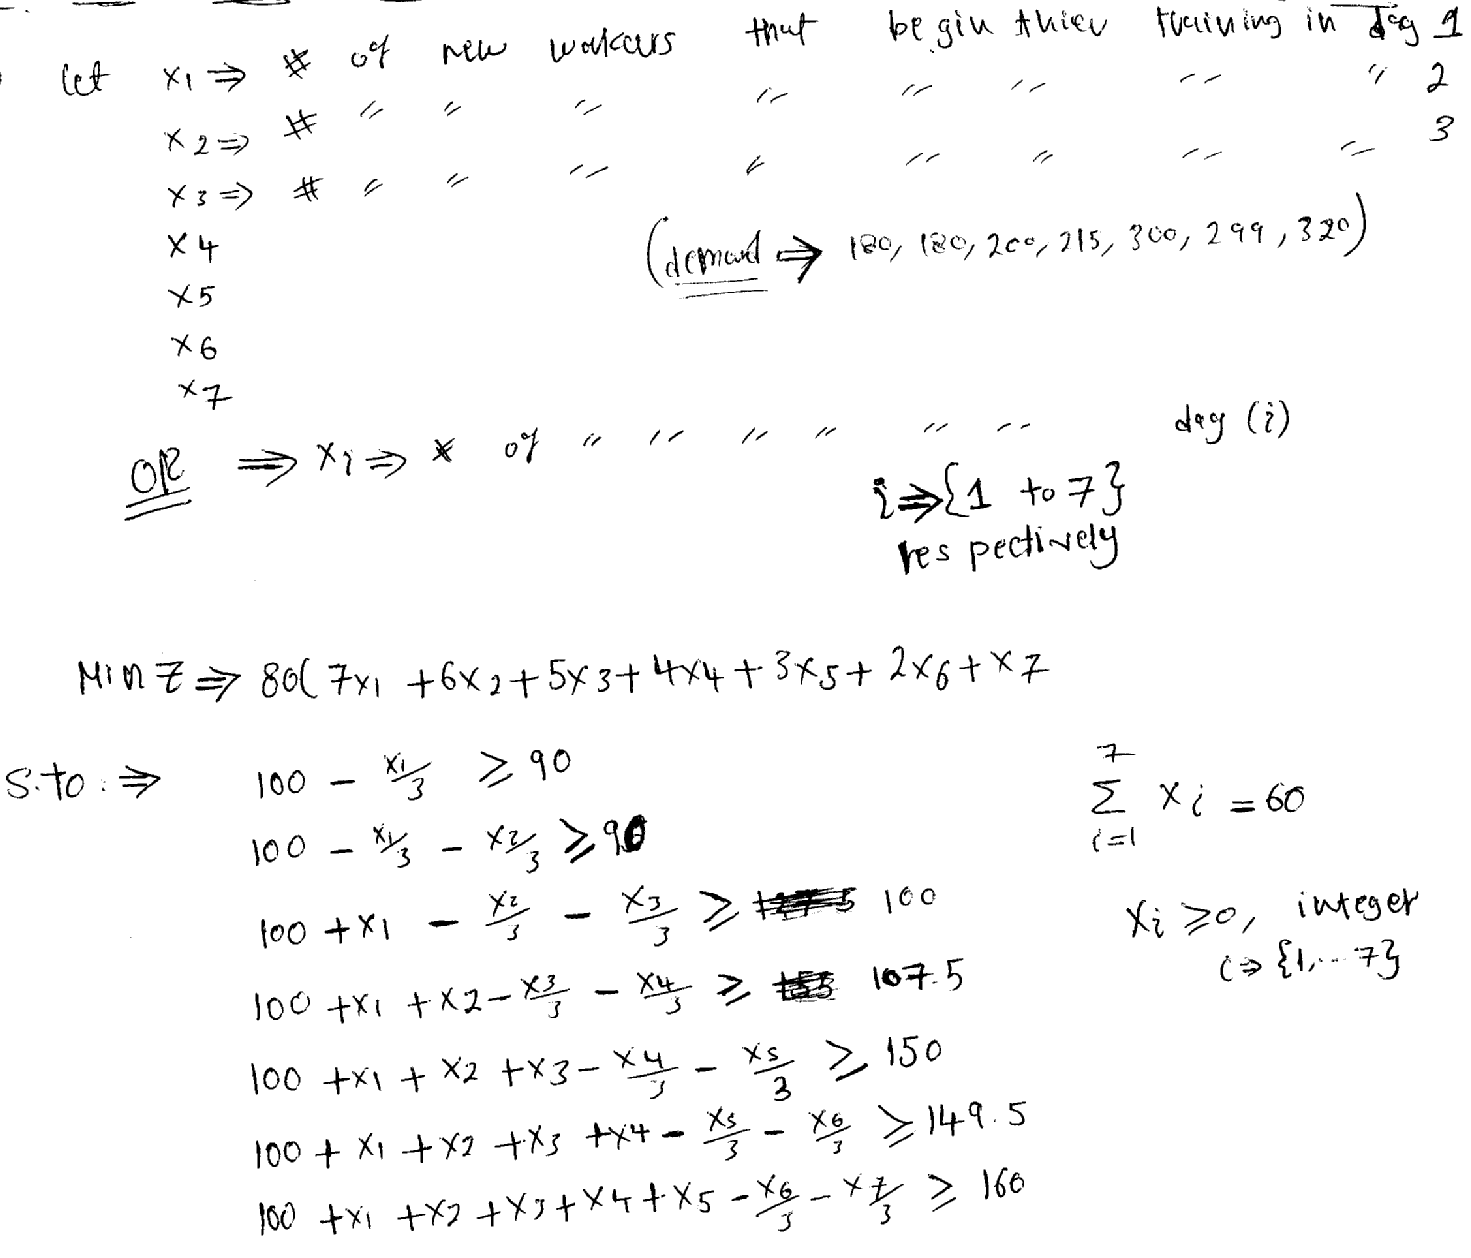 let x1 ⇒ # of new workers that begin thier training in day 1
x2 ⇒ # " " " " " " " " 2
x3 ⇒ # " " " " " " " " 3
x4
(demand ⇒ 180, 180, 200, 215, 300, 299, 320)
x5
x6
x7
OR ⇒ xi ⇒ # of " " " " " " day (i)
i ⇒ {1 to 7}
respectively
Min Z ⇒ 80( 7x1 + 6x2 + 5x3 + 4x4 + 3x5 + 2x6 + x7
S.to : ⇒ 100 - x1/3 ≥ 90
100 - x1/3 - x2/3 ≥ 90
100 + x1 - x2/3 - x3/3 ≥ 100
100 + x1 + x2 - x3/3 - x4/3 ≥ 107.5
100 + x1 + x2 + x3 - x4/3 - x5/3 ≥ 150
100 + x1 + x2 + x3 + x4 - x5/3 - x6/3 ≥ 149.5
100 + x1 + x2 + x3 + x4 + x5 - x6/3 - x7/3 ≥ 160
7
Σ xi = 60
i=1
xi ≥ 0, integer
i ⇒ {1, ... 7}